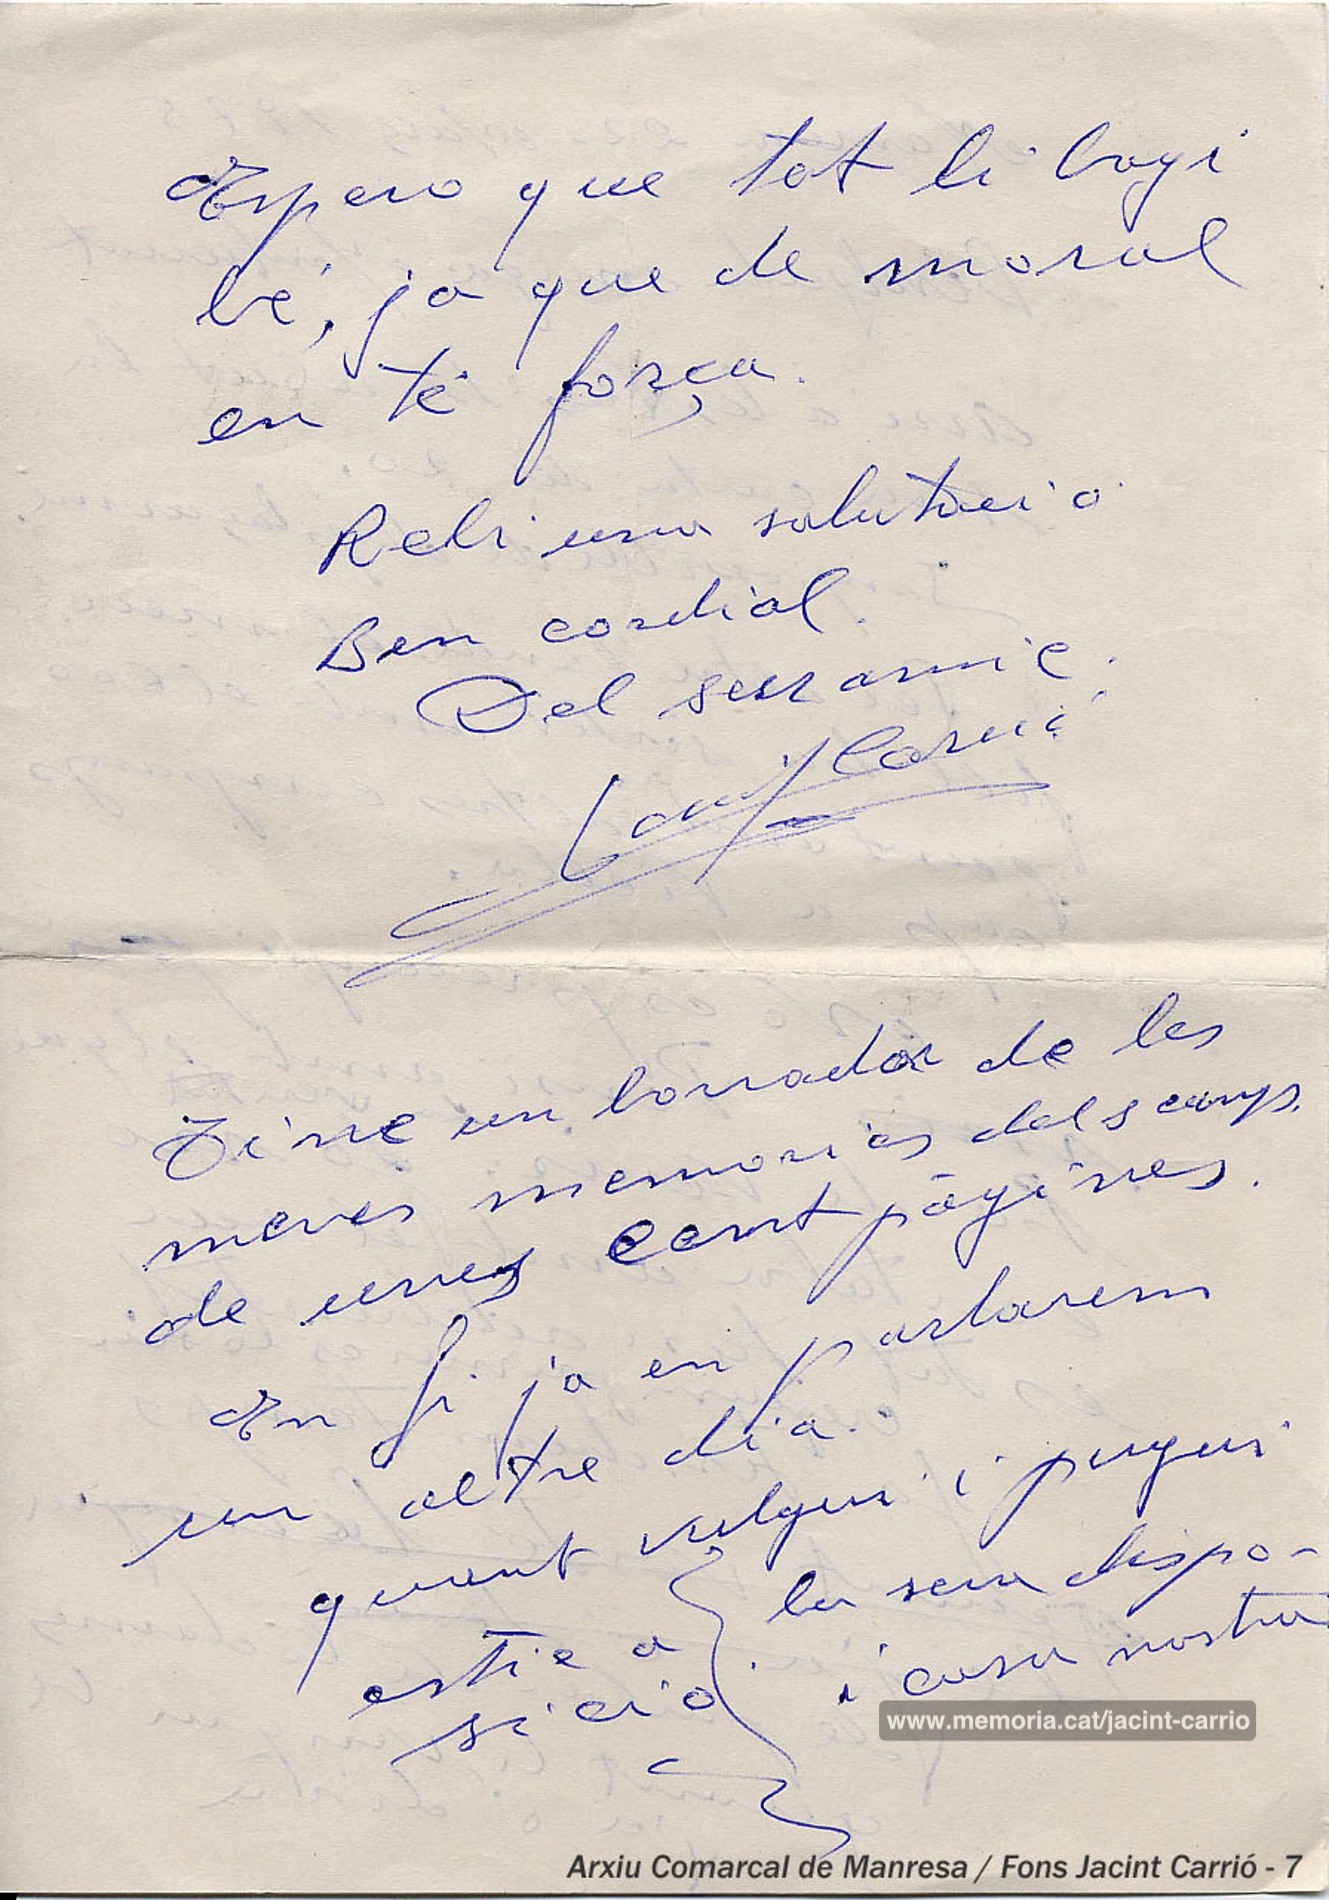 Espero que tot li vagi
bé, ja que de moral
en té força.
Rebi una salutacio
Ben cordial.
Del seu amic.
Tinc un borrador de les
meves memories dels camps.
de unes cent pàgines.
En fi ja en parlarem
un altre dia.
quant vulgui i pugui
estic a la seva dispo-
sicio i casa nostra
www.memoria.cat/jacint-carrio
Arxiu Comarcal de Manresa / Fons Jacint Carrió - 7